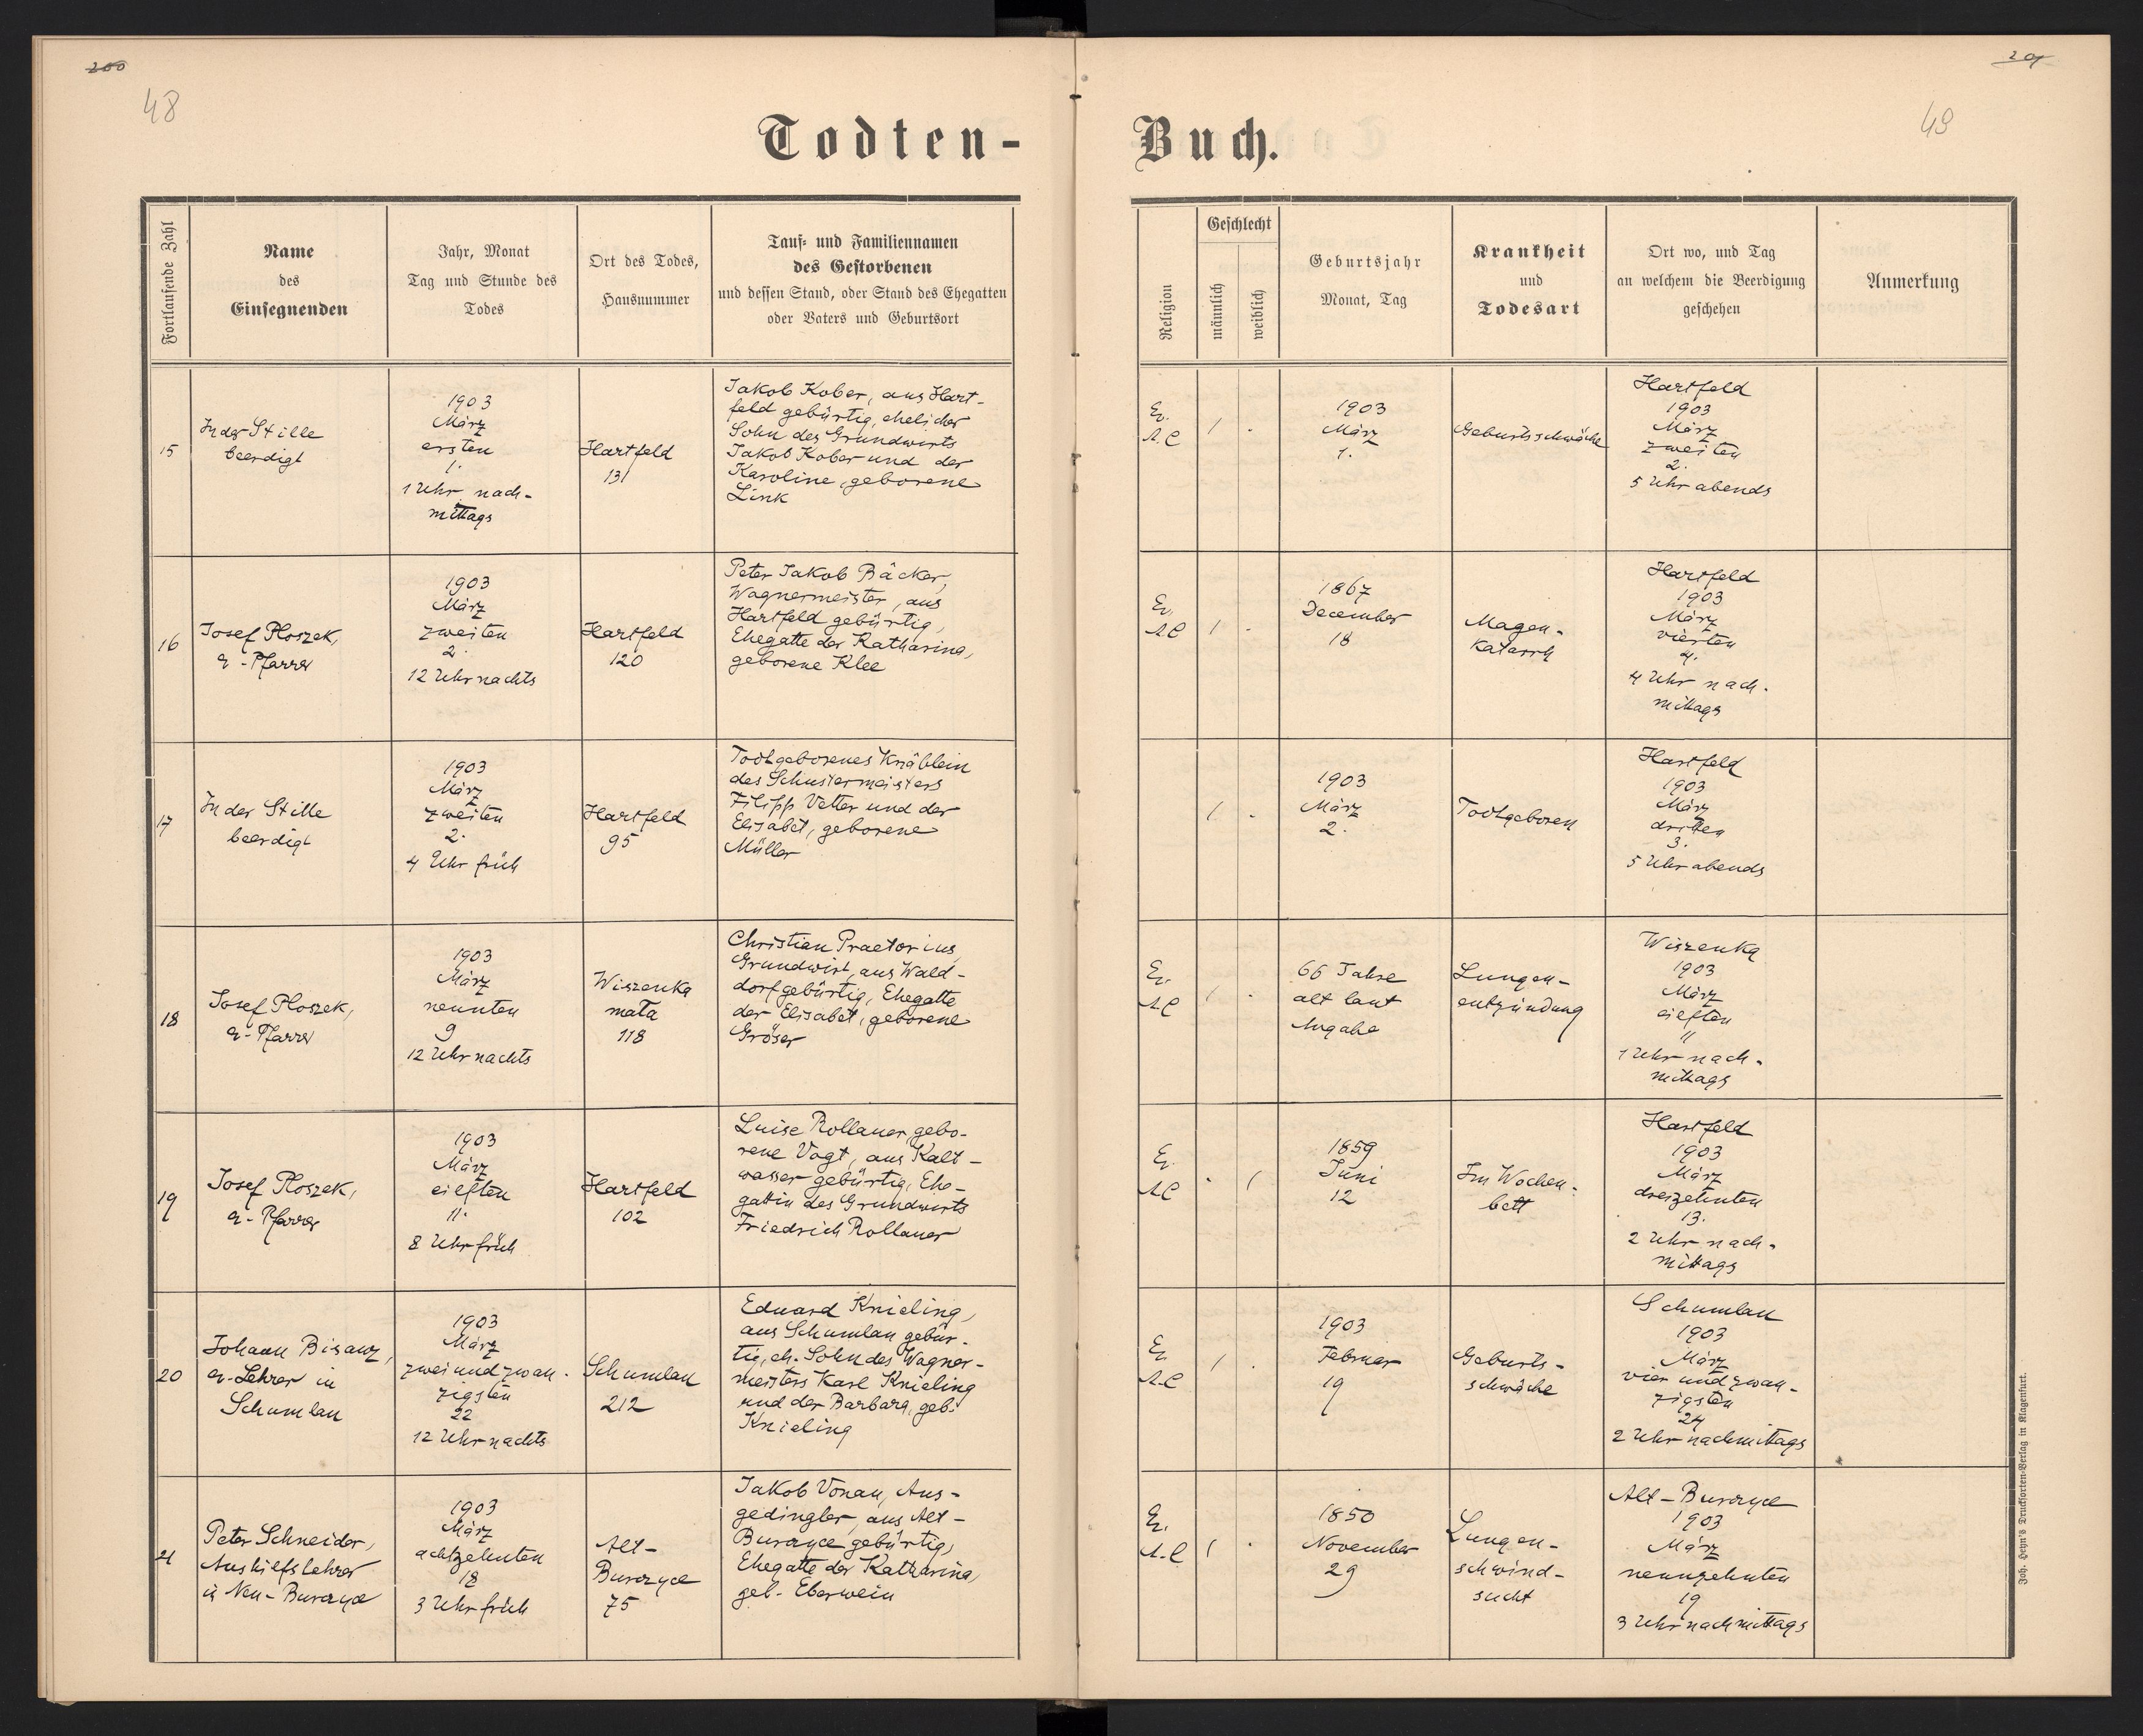 200
201
48
49
Todten-
Buch.
Fortlaufende Zahl
Name
des
Einsegnenden
Jahr, Monat
Tag und Stunde des
Todes
Ort des Todes,
Hausnummer
Tauf- und Familiennamen
des Gestorbenen
und dessen Stand, oder Stand des Ehegatten
oder Vaters und Geburtsort
Religion
Geschlecht
männlich
weiblich
Geburtsjahr
Monat, Tag
Krankheit
und
Todesart
Ort wo, und Tag
an welchem die Beerdigung
geschehen
Anmerkung
15
In der Stille
beerdigt
1903
März
ersten
1.
1 Uhr nach-
mittags
Hartfeld
131
Jakob Kober, aus Hart-
feld gebürtig, ehelicher
Sohn des Grundwirts
Jakob Kober und der
Karoline, geborene
Link
Ev.
A.C
1 .
1903
März
1.
Geburtsschwäche
Hartfeld
1903
März
zweiten
2.
5 Uhr abends
16
Josef Ploszek,
ev-Pfarrer
1903
März
zweiten
2.
12 Uhr nachts
Hartfeld
120
Peter Jakob Bäcker,
Wagnermeister, aus
Hartfeld gebürtig,
Ehegatte der Katharina,
geborene Klee
Ev.
AC
1 .
1867
December
18
Magen-
Katarrh
Hartfeld
1903
März
vierten
4.
4 Uhr nach-
mittags
17
In der Stille
beerdigt
1903
März
zweiten
2.
4 Uhr früh
Hartfeld
95
Todtgeborenes Knäblein
des Schustermeisters
Filipp Vetter und der
Elisabet, geborene
Müller
1 .
1903
März
2.
Todtgeboren
Hartfeld
1903
März
dritten
3.
5 Uhr abends
18
Josef Ploszek,
ev-Pfarrer
1903
März
neunten
9
12 Uhr nachts
Wiszenka
mała
118
Christian Praetorius,
Grundwirt, aus Wald-
dorf gebürtig, Ehegatte
der Elisabet, geborene
Gröser
Ev.
AC
1 .
66 Jahre
alt laut
Angabe
Lungen-
entzündung
Wiszenka
1903
März
eilften
11
1 Uhr nach-
mittags
19
Josef Ploszek,
ev-Pfarrer
1903
März
eilften
11.
8 Uhr früh
Hartfeld
102
Luise Rollauer, gebo-
rene Vogt, aus Kalt-
wasser gebürtig, Ehe-
gattin des Grundwirts
Friedrich Rollauer
Ev.
AC
. 1
1859
Juni
12
Im Wochen-
bett
Hartfeld
1903
März
dreizehnten
13.
2 Uhr nach-
mittags
20
Johann Bisanz,
ev-Lehrer in
Schumlau
1903
März
zweiundzwan-
zigsten
22
12 Uhr nachts
Schumlau
212
Eduard Knieling,
aus Schumlau gebür-
tig, eh. Sohn des Wagner-
meisters Karl Knieling
und der Barbara, geb.
Knieling
Ev.
A.C
1 .
1903
Februar
19
Geburts-
schwäche
Schumlau
1903
März
vierundzwan-
zigsten
24
2 Uhr nachmittags
21
Peter Schneider,
Aushilfslehrer
in Neu-Burczyce
1903
März
achtzehnten
18
3 Uhr früh
Alt-
Burczyce
75
Jakob Vonau, Aus-
gedingler, aus Alt-
Burczyce gebürtig,
Ehegatte der Katharina,
geb. Eberwein
Ev.
A.C
1 .
1850
November
29
Lungen-
schwind-
sucht
Alt-Burczyce
1903
März
neunzehnten
19
3 Uhr nachmittags
Joh. Heyn's Drucksorten-Verlag in Klagenfurt.